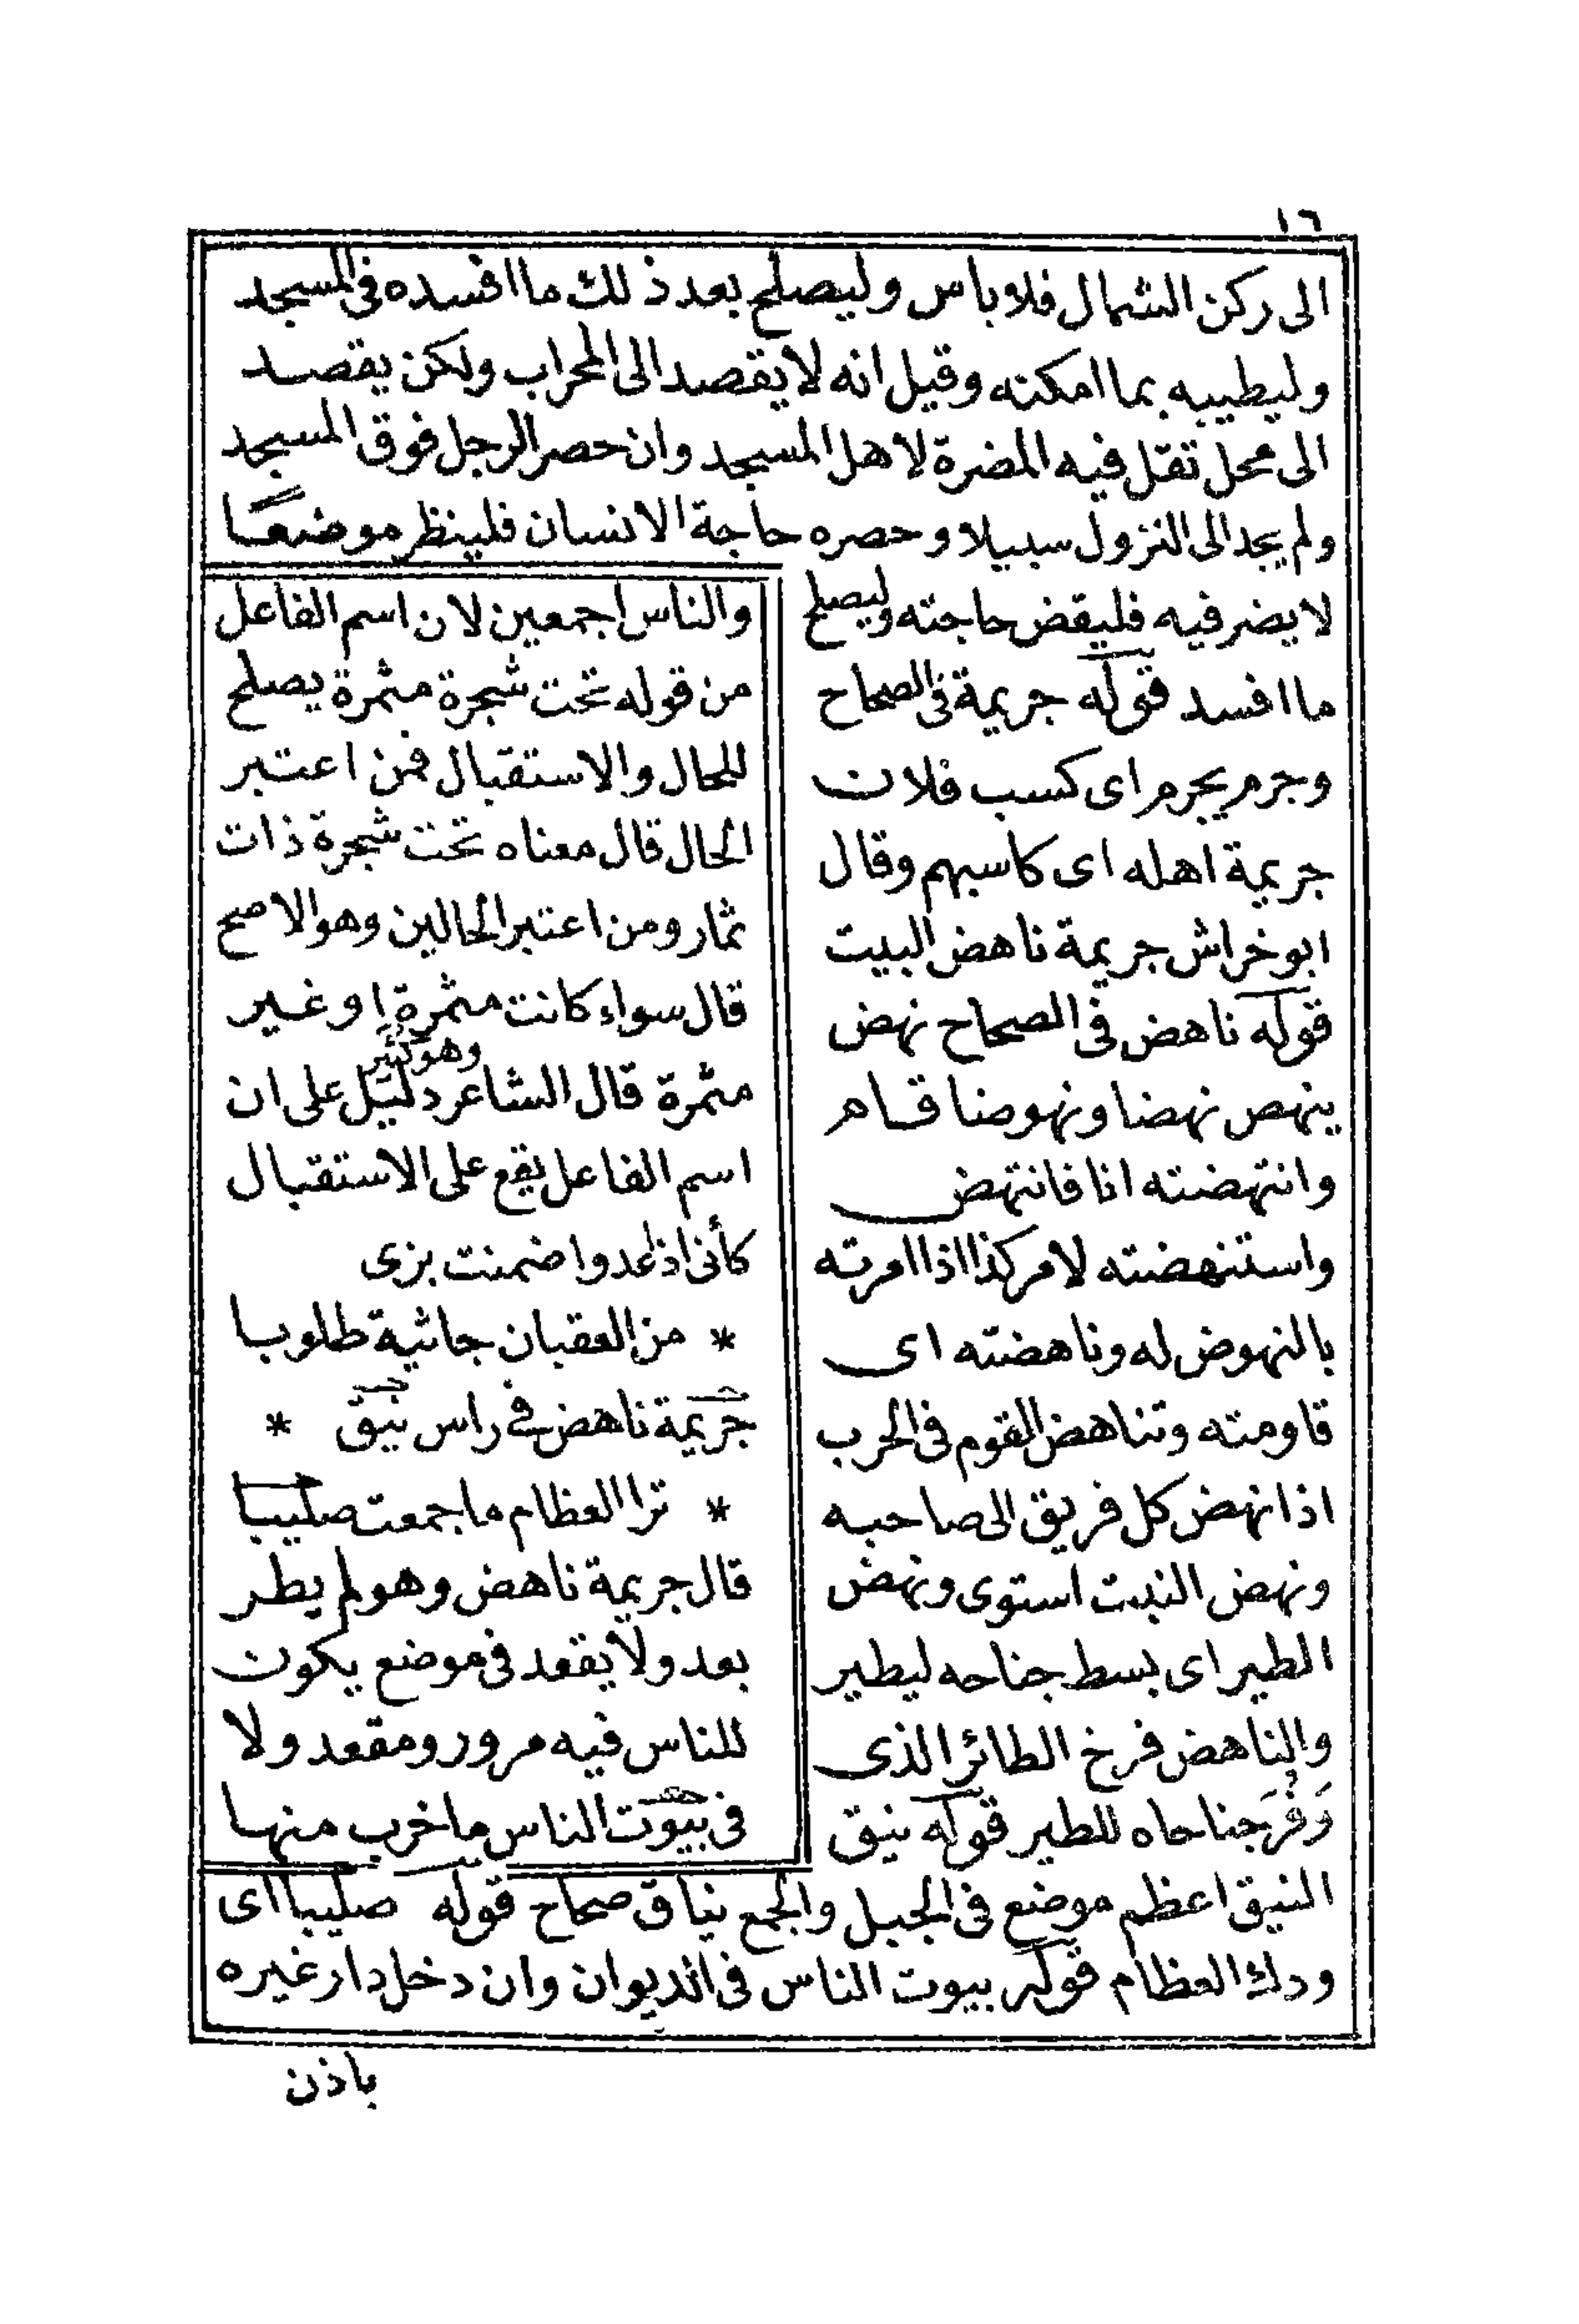 ١٦
الى ركن الشمال فلا باس وليصلح بعد ذلك ما افسده في المسجد
وليطيبه بما امكنه وقيل انه لا يقصد الى المحراب ولكن يقصد
الى محل تقل فيه المضرة لاهل المسجد وان حصر الرجل فوق المسجد
ولم يجد الى النزول سبيلا وحصره حاجة الانسان فلينظر موضعًا
لا يضر فيه فليقض حاجته وليصلح
ما افسد قوله جريمة في الصحاح
وجرم يجرم اى كسب فلان
جريمة اهله اى كاسبهم وقال
ابو خراش جريمة ناهض البيت
قوله ناهض في الصحاح نهض
ينهض نهضا ونهوضا قام
وانتهضته انا فانتهض
واستنهضته لامر كذا اذا امرته
بالنهوض له وناهضته اى
قاومته وتناهض القوم في الحرب
اذا نهض كل فريق الى صاحبه
ونهض النبت استوى ونهض
الطير اى بسط جناحه ليطير
والناهض فرخ الطائر الذى
وَفُرَ جناحاه للطير قوله نيق
والناس اجمعين لان اسم الفاعل
من قوله تحت شجرة مثمرة يصلح
للحال والاستقبال فمن اعتبر
الحال قال معناه تحت شجرة ذات
ثمار ومن اعتبر الحالين وهو الاصح
قال سواء كانت مثمرة او غير
وهو كثير
مثمرة قال الشاعر دليل على ان
اسم الفاعل يقع على الاستقبال
كأنى اذ غدوا ضمنت بزى
* من العقبان جاثية طلوبا
جريمة ناهض في راس نيق *
* ترا العظام ما جمعت صليبا
قال جريمة ناهض وهو لم يطر
بعد ولا يقعد في موضع يكون
للناس فيه مرور ومقعد ولا
في بيوت الناس ما خرب منها
النيق اعظم موضع في الجبل والجمع نياق صحاح قوله صليبا اى
ودك العظام قوله بيوت الناس في الديوان وان دخل دار غيره
باذن